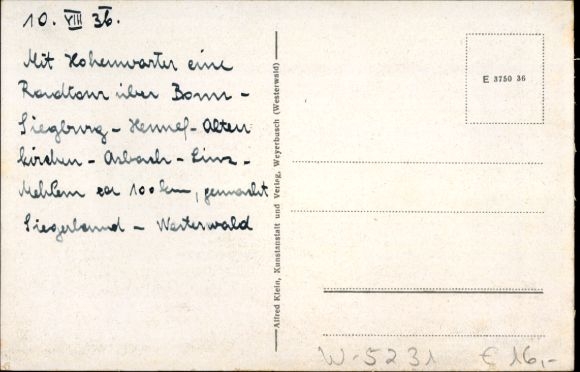 10. VIII 36.
Mit Hohenwarter eine
Radtour über Bonn -
Siegburg - Hennef - Alten
kirchen - Asbach - Linz -
Mehlem ca 100 km, gemacht
Siegerland - Westerwald
Alfred Klein, Kunstanstalt und Verlag, Weyerbusch (Westerwald)
E 3750 36
W-5231 € 16,-